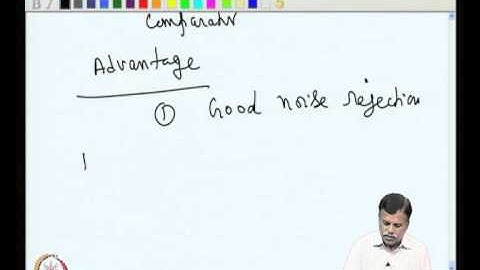 Comparator
Advantage
① Good noise rejection